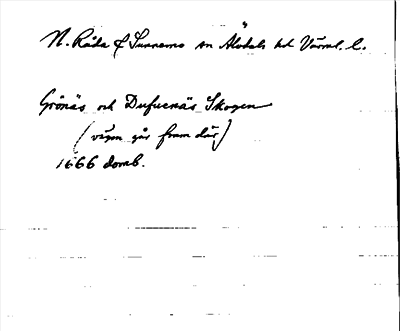 N. Råda & Sunnemo sn Älvdals hd Värml. l.
Grönäs och Dufvenäs Skogen
(vägen går fram där)
1666 domb.